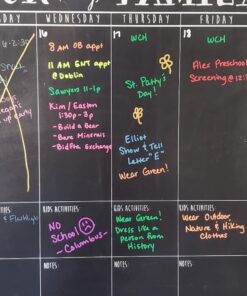 FAMILY
WEDNESDAY
THURSDAY
FRIDAY
16
8 AM OB appt
11 AM ENT appt
@Doblin
Sawyers 11-1p
Kim / Easton
1:30p - 3p
- Build a Bear
- Bare Minerals
17
WCH
St. Patty's
Day!
Elliet
Show & Tell
Letter "E"
Wear Green!
18
WCH
Alex Preschool
Screening @12:
KIDS ACTIVITIES:
NO
School
- Columbus -
KIDS ACTIVITIES:
Wear Green!
Dress like a
person from
History
KIDS ACTIVITIES:
Wear Outdoor,
Nature & Hiking
Clothes
NOTES:
NOTES:
NOTES: